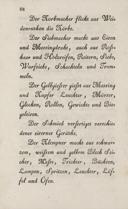 64
Der Korbmacher flicht aus Wei-
denruthen die Körbe.
Der Siebmacher macht aus Eisen
und Messingdrath, auch aus Roß-
haar und Holzreifen, Reitern, Siebe,
Wurfsiebe, Schachteln und Trom-
meln.
Der Gelbgießer gießt aus Messing
und Kupfer Leuchter, Mörser,
Glocken, Rollen, Gewichte und Bie-
geleisen.
Der Schmied verfertigt verschie-
dene eiserner Geräthe.
Der Klempner macht aus schwar-
zem, weißem und gelbem Blech Sei-
her, Maße, Trichter, Büchsen,
Lampen, Spritzen, Leuchter, Löf-
fel und Ofen.